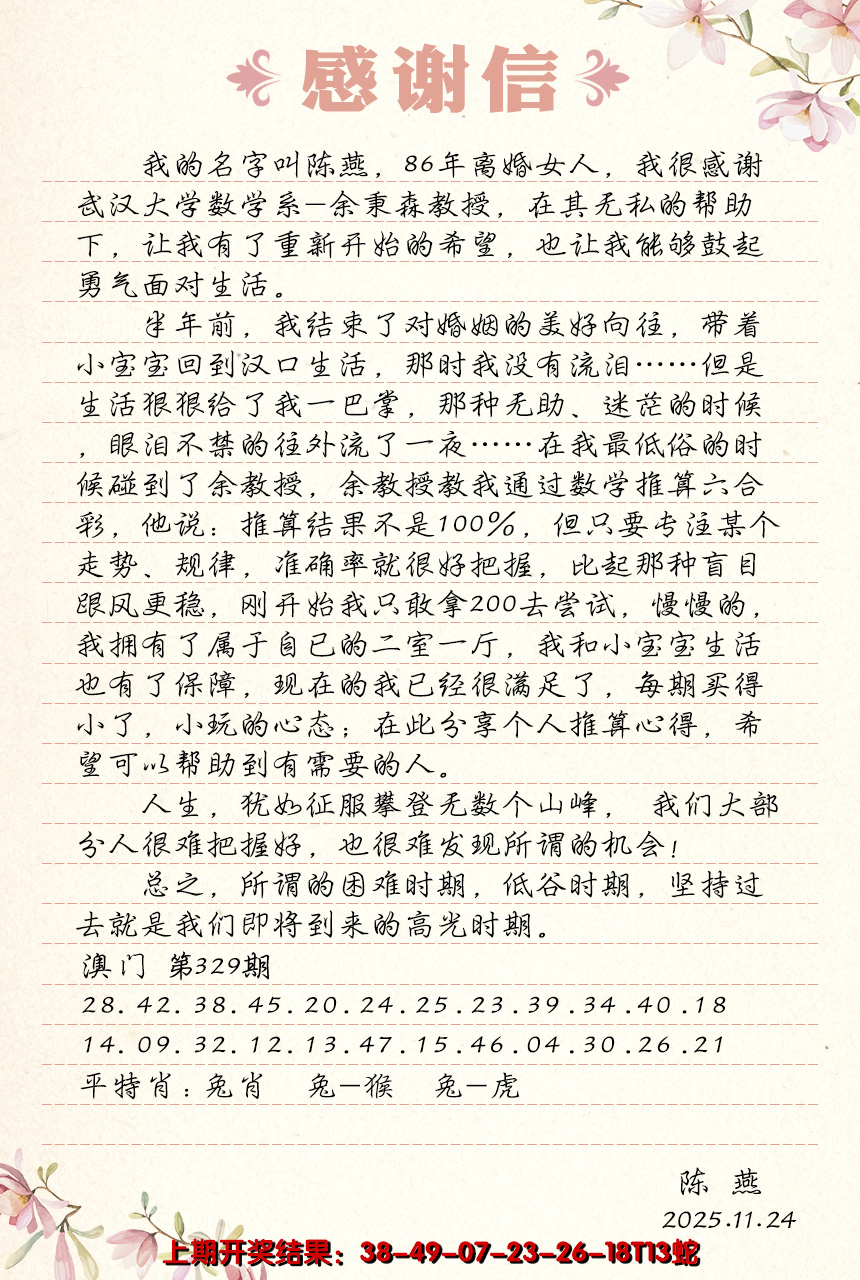 感谢信
我的名字叫陈燕，86年离婚女人，我很感谢
武汉大学数学系—余秉森教授，在其无私的帮助
下，让我有了重新开始的希望，也让我能够鼓起
勇气面对生活。
半年前，我结束了对婚姻的美好向往，带着
小宝宝回到汉口生活，那时我没有流泪……但是
生活狠狠给了我一巴掌，那种无助、迷茫的时候
，眼泪不禁的往外流了一夜……在我最低俗的时
候碰到了余教授，余教授教我通过数学推算六合
彩，他说：推算结果不是100%，但只要专注某个
走势、规律，准确率就很好把握，比起那种盲目
跟风更稳，刚开始我只敢拿200去尝试，慢慢的，
我拥有了属于自已的二室一厅，我和小宝宝生活
也有了保障，现在的我已经很满足了，每期买得
小了，小玩的心态；在此分享个人推算心得，希
望可以帮助到有需要的人。
人生，犹如征服攀登无数个山峰， 我们大部
分人很难把握好，也很难发现所谓的机会！
总之，所谓的困难时期，低谷时期，坚持过
去就是我们即将到来的高光时期。
澳门 第329期
28.42.38.45.20.24.25.23.39.34.40.18
14.09.32.12.13.47.15.46.04.30.26.21
平特肖：兔肖 兔—猴 兔—虎
陈 燕
2025.11.24
上期开奖结果：38-49-07-23-26-18T13蛇